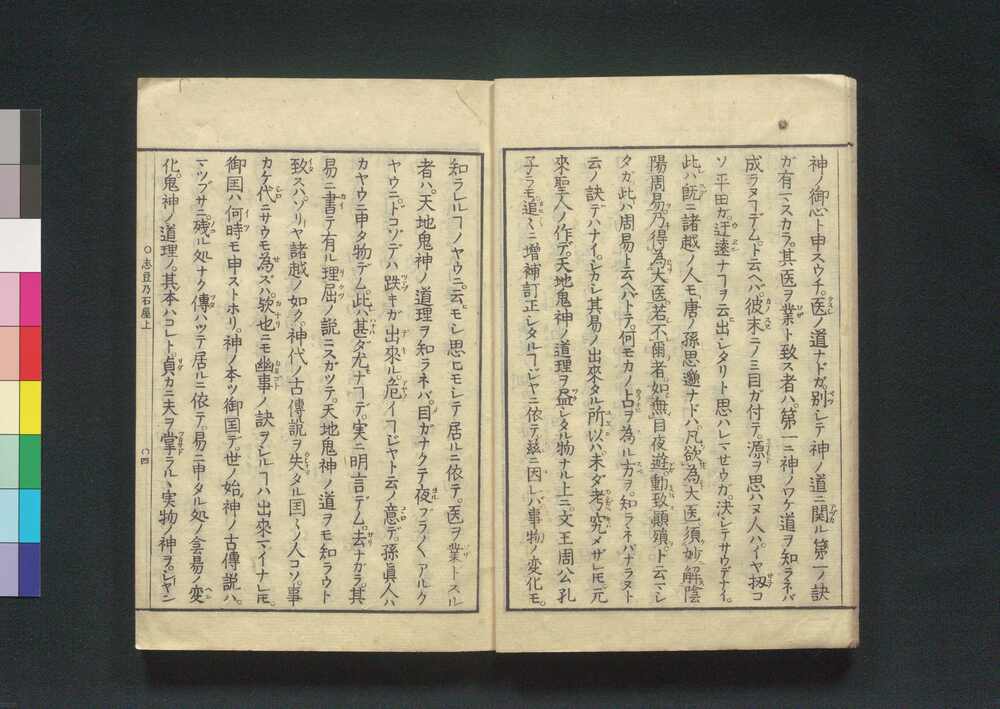 神ノ御心ト申スウチ。医ノ道ナドガ。別シテ神ノ道ニ関ル第一ノ訣
ガ有ヿ。スカラ。其医ヲ業ト致ス者ハ。第一ニ神ノワケ道ヲ知ラネバ
成ラヌヿデム。ト云ヘバ。彼末ニノミ目ガ付テ。源ヲ思ハヌ人ハ。イヤ扨コ
ソ平田ガ。迂遠ナヿヲ云出シタリト思ハレマセウガ。決シテサウデナイ。
此ハ既ニ諸越ノ人モ。唐ノ孫思邈ナドハ。凡欲為大医。須妙解陰
陽周易。乃得為大医。若不爾者。如無目夜遊。動致顚殞。ド云マシ
タガ。此ハ周易ト云ヘバトテ。何モカノ占ヲ為ル方ヲ。知ラネバナラヌト
云ノ訣デハナイ。シカシ其易ノ出來タル所以ハ。未ダ考究メザレモ。元
來聖人ノ作デ。天地鬼神ノ道理ヲ盡シタル物ナル上ニ。文王周公孔
子ラモ。追〻ニ増補訂正シタルヿジャニ依テ。茲ニ因レバ。事物ノ変化モ。
知ラレルヿノヤウニ。云モシ思ヒモシテ居ルニ依テ。医ヲ業トスル
者ハ。天地鬼神ノ道理ヲ知ラネバ。目ガナクテ夜ブラ〳〵アルク
ヤウニ。ドコゾデハ跌キガ出來ル。危イヿジャト云ノ意デ。孫眞人ハ
カヤウニ申タ物デム。此ハ甚ダ尤ナヿデ。実ニ明言デム。去ナガラ。其
易ニ書テ有ル理屈ノ説ニスガツテ。天地鬼神ノ道ヲモ知ラウト
致スハ。ゾリヤ諸越ノ如ク。神代ノ古傳説ヲ失タル国〻ノ人コソ。事
カケ代ニサウモ為ズハ。歟也ニモ幽事ノ訣ヲシルヿハ出來マイナレモ。
御国ハ何時モ申ストホリ。神ノ本ツ御国デ。世ノ始。神ノ古傳説ハ。
マツブサニ残ル処ナク傳ハツテ居ルニ依テ。易ニ申タル処ノ侌昜ノ変
化鬼神ノ道理ノ。其本ハコレト。貞カニ夫ヲ掌ラルヽ実物ノ神ヲ。シャン
〇志豆乃石屋上
〇四